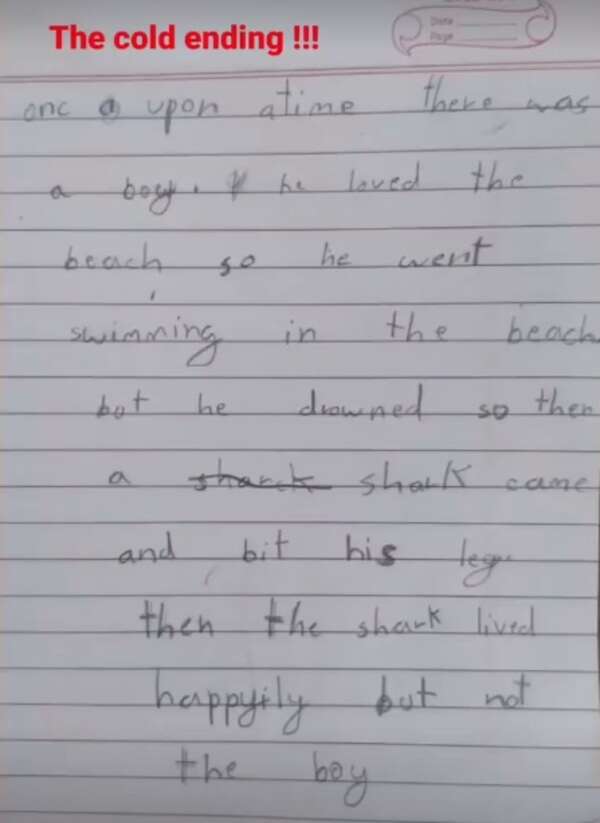 The cold ending !!!
Date
Page
onc a upon atime there was
a boy. he loved the
beach so he went
swimming in the beach
but he drowned so then
a sharck shark came
and bit his leg
then the shark lived
happyily but not
the boy